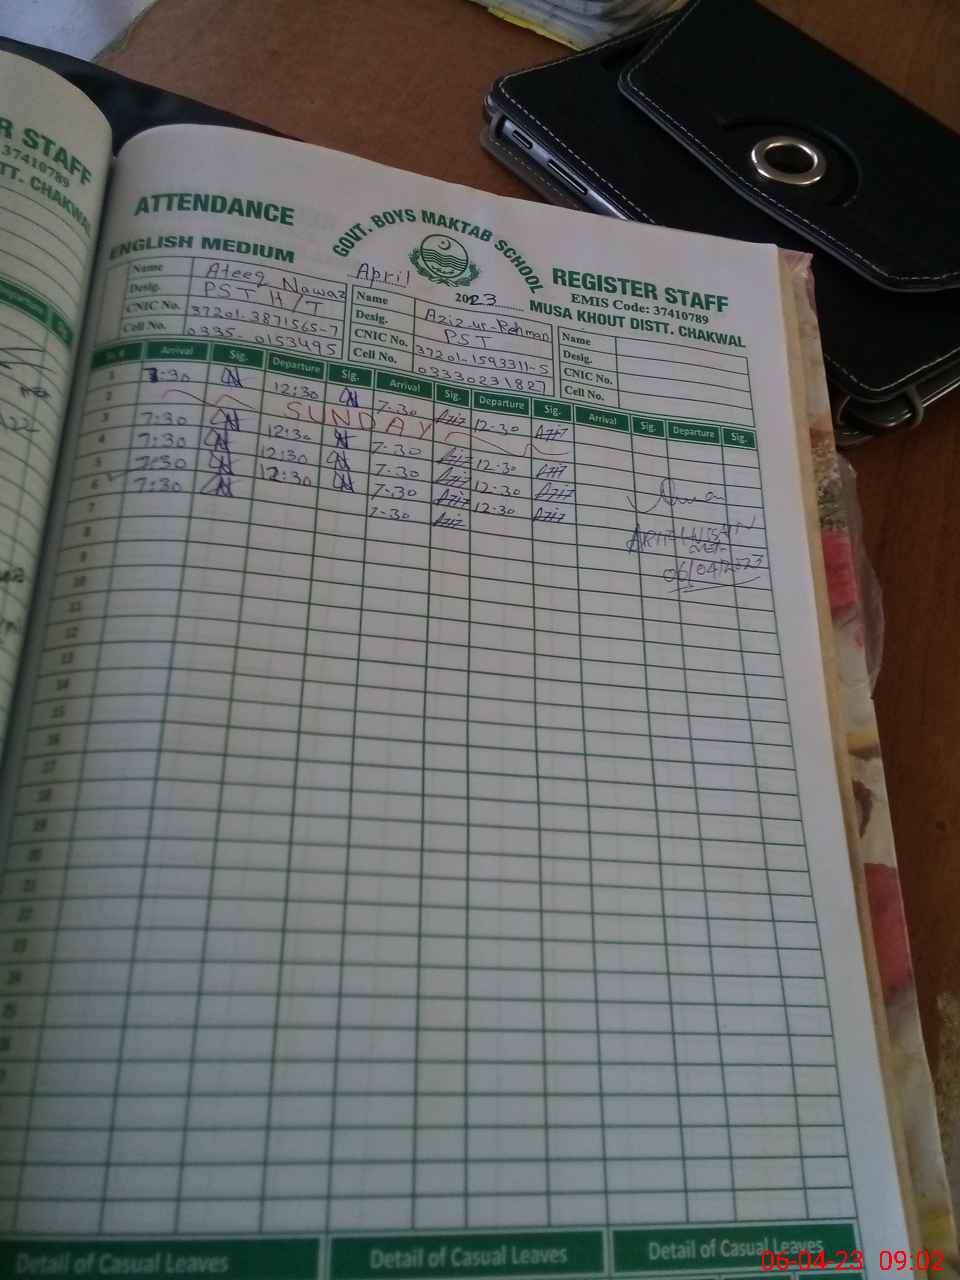 R STAFF
37410789
TT. CHAKWAL
ATTENDANCE
GOVT. BOYS MAKTAB SCHOOL
REGISTER STAFF
ENGLISH MEDIUM
April
2023
EMIS Code: 37410789
MUSA KHOUT DISTT. CHAKWAL
Name Ateeq Nawaz
Desig. PST H/T
CNIC No. 37201-3871565-7
Cell No. 0335-0153495
Name Aziz-ur-Rehman
Desig. PST
CNIC No. 37201-1593311-5
Cell No. 03330231827
Name
Desig.
CNIC No.
Cell No.
Arrival Sig. Departure Sig. Arrival Sig. Departure Sig. Arrival Sig. Departure Sig.
1 7:30 12:30 7-30 Aziz 12-30 Aziz
2 SUNDAY
3 7:30 12:30 7-30 Aziz 12-30 Aziz
4 7:30 12:30 7-30 Aziz 12-30 Aziz
5 7:30 12:30 7-30 Aziz 12-30 Aziz
6 7:30 7-30 Aziz
7
8
9
10
11
12
13
14
15
16
17
18
19
20
21
22
23
24
25
06/04/2023
Detail of Casual Leaves
Detail of Casual Leaves
Detail of Casual Leaves
06-04-23 09:02